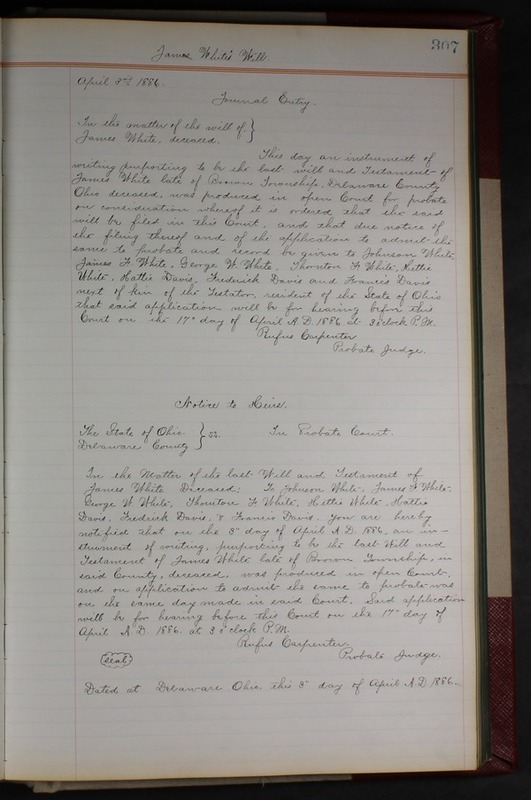 307
James White's Will.
April 3rd 1886.
Journal Entry.
In the matter of the will of }
James White, deceased.
This day an instrument of
writing purporting to be the last will and Testament of
James White late of Brown Township, Delaware County
Ohio deceased, was produced in open Court for probate
on consideration whereof it is ordered that the said
will be filed in this Court, and that due notice of
the filing thereof and of the application to admit the
same to probate and record be given to Johnson White,
James F White, George W. White, Thornton F White, Hettie
White, Hattie Davis, Frederick Davis and Frances Davis
next of kin of the Testator, resident of the State of Ohio
that said application will be for hearing before this
Court on the 17" day of April A.D. 1886 at 3 o'clock P.M.
Rufus Carpenter
Probate Judge.
Notice to Heirs.
The State of Ohio } ss. In Probate Court.
Delaware County
In the Matter of the last Will and Testament of
James White Deceased: To Johnson White, James F White,
George W. White, Thornton F White, Hettie White, Hattie
Davis, Fredrick Davis, & Francis Davis. You are hereby
notified that on the 3" day of April A.D. 1886, an in-
strument of writing, purporting to be the last Will and
Testament of James White late of Brown Township, in
said County, deceased, was produced in open Court,
and an application to admit the same to probate was
on the same day made in said Court. Said application
will be for hearing before this Court on the 17" day of
April A.D. 1886. at 3 o'clock P.M.
Rufus Carpenter
Probate Judge.
(seal)
Dated at Delaware Ohio. this 3" day of April A.D. 1886.